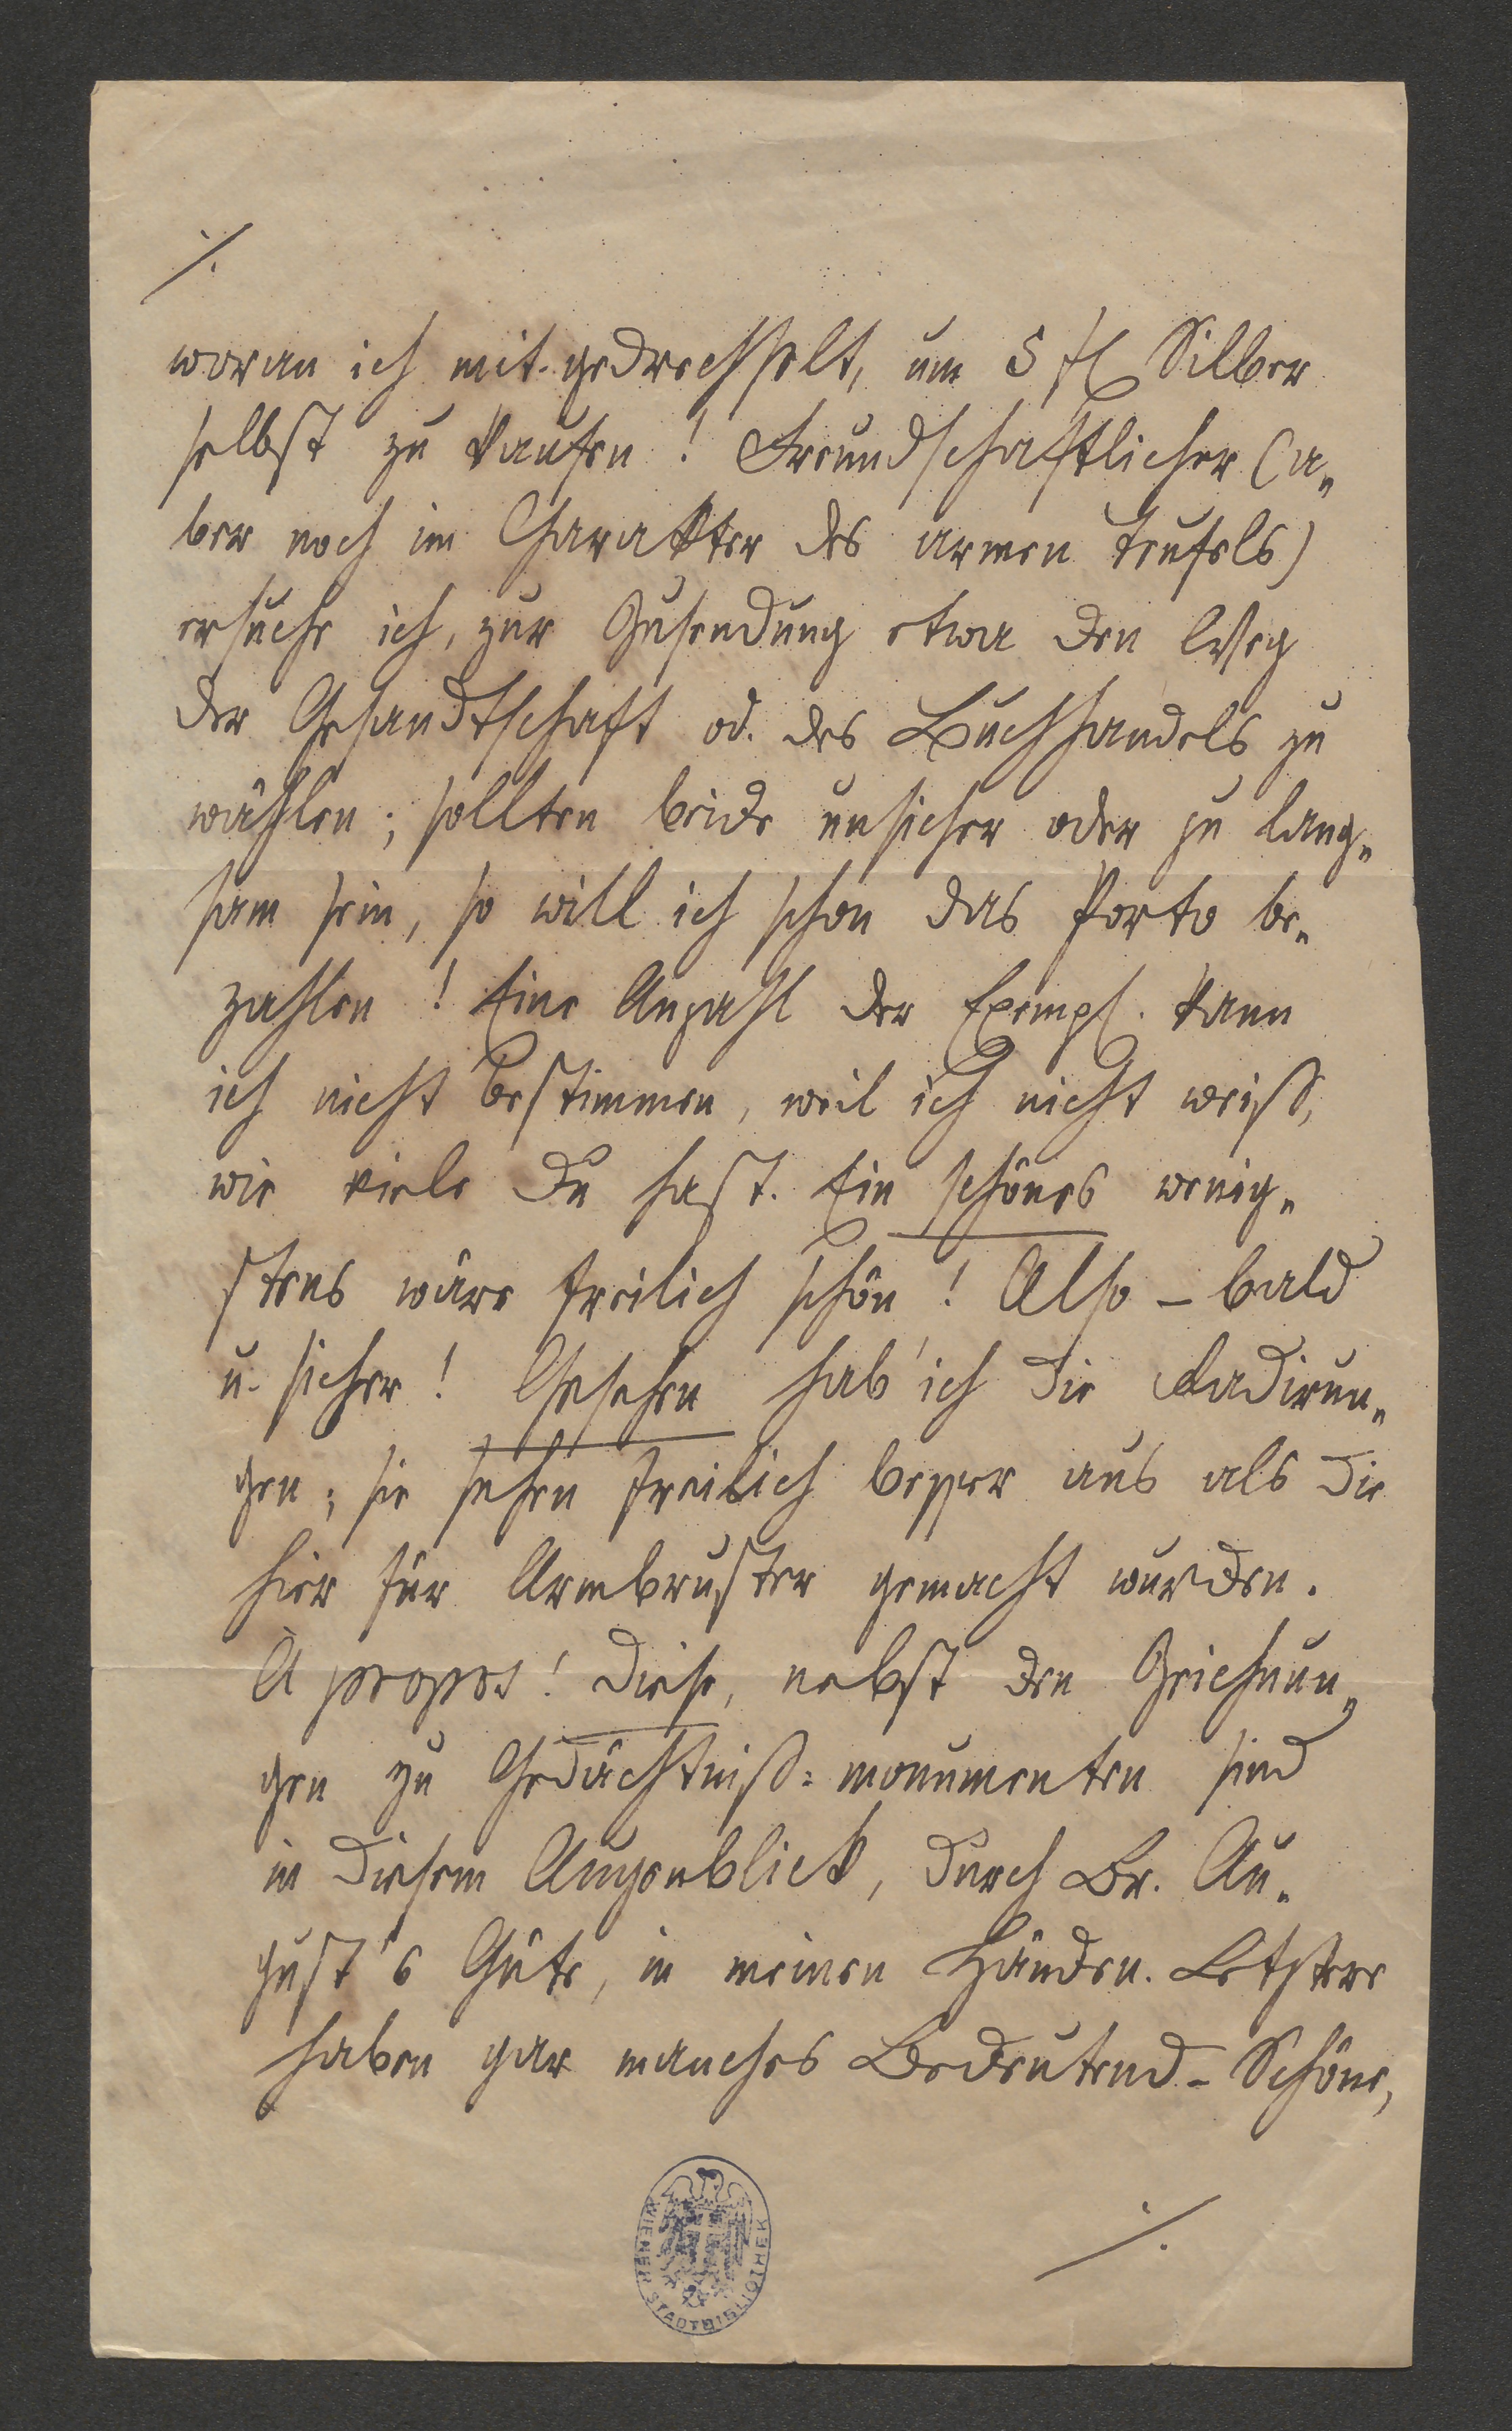 ./.
woran ich mit-gedrechselt, um 5 fl Silber
selbst zu kaufen! Freundschaftlicher (a-
ber noch im Charakter des armen Teufels)
ersuche ich, zur Zusendung etwa den Weg
der Gesandtschaft od. des Buchhandels zu
wählen; sollten beide unsicher oder zu lang-
sam sein, so will ich schon das Porto be-
zahlen! Eine Anzahl der Exempl. kann
ich nicht bestimmen, weil ich nicht weiß,
wie viele Du hast. Ein schönes wenig-
stens wäre freilich schön! Also – bald
u. sicher! Gesehen hab' ich die Radirun-
gen; sie sehen freilich besser aus als die
hier für Armbruster gemacht wurden.
A propos! Diese, nebst den Zeichnun-
gen zu Gedächtniß-monumenten sind
in diesem Augenblick, durch Br. Au-
gust's Güte, in meinen Händen. Letztere
haben gar manches Bedeutend-Schöne,
./.
WIENER STADTBIBLIOTHEK